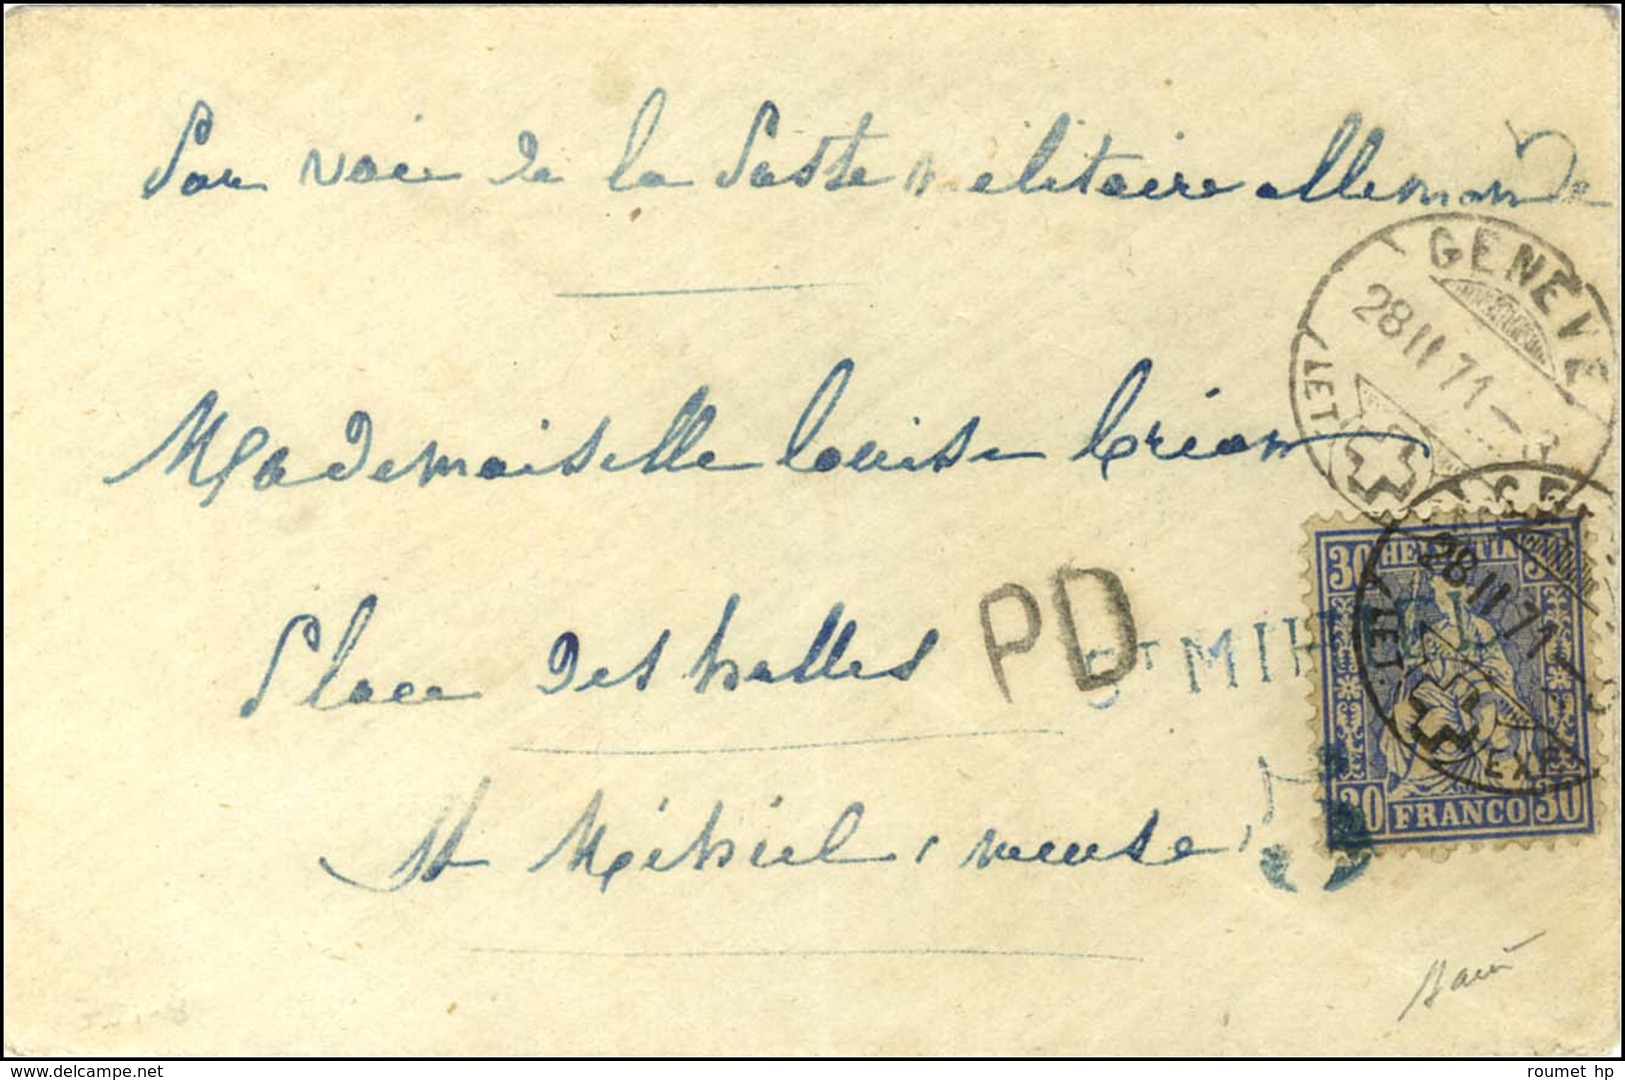 Par voie de la Poste militaire allemande
GENEVE
28 II 71 - 8
LET
Mademoiselle Louise Crion
28 II 71 - 8
LET.
EXP
30 HELVETIA 30
30 FRANCO 30
Place des halles
PD
ST MIHIEL
St Mihiel, meuse,
delcampe.net
roumet hp